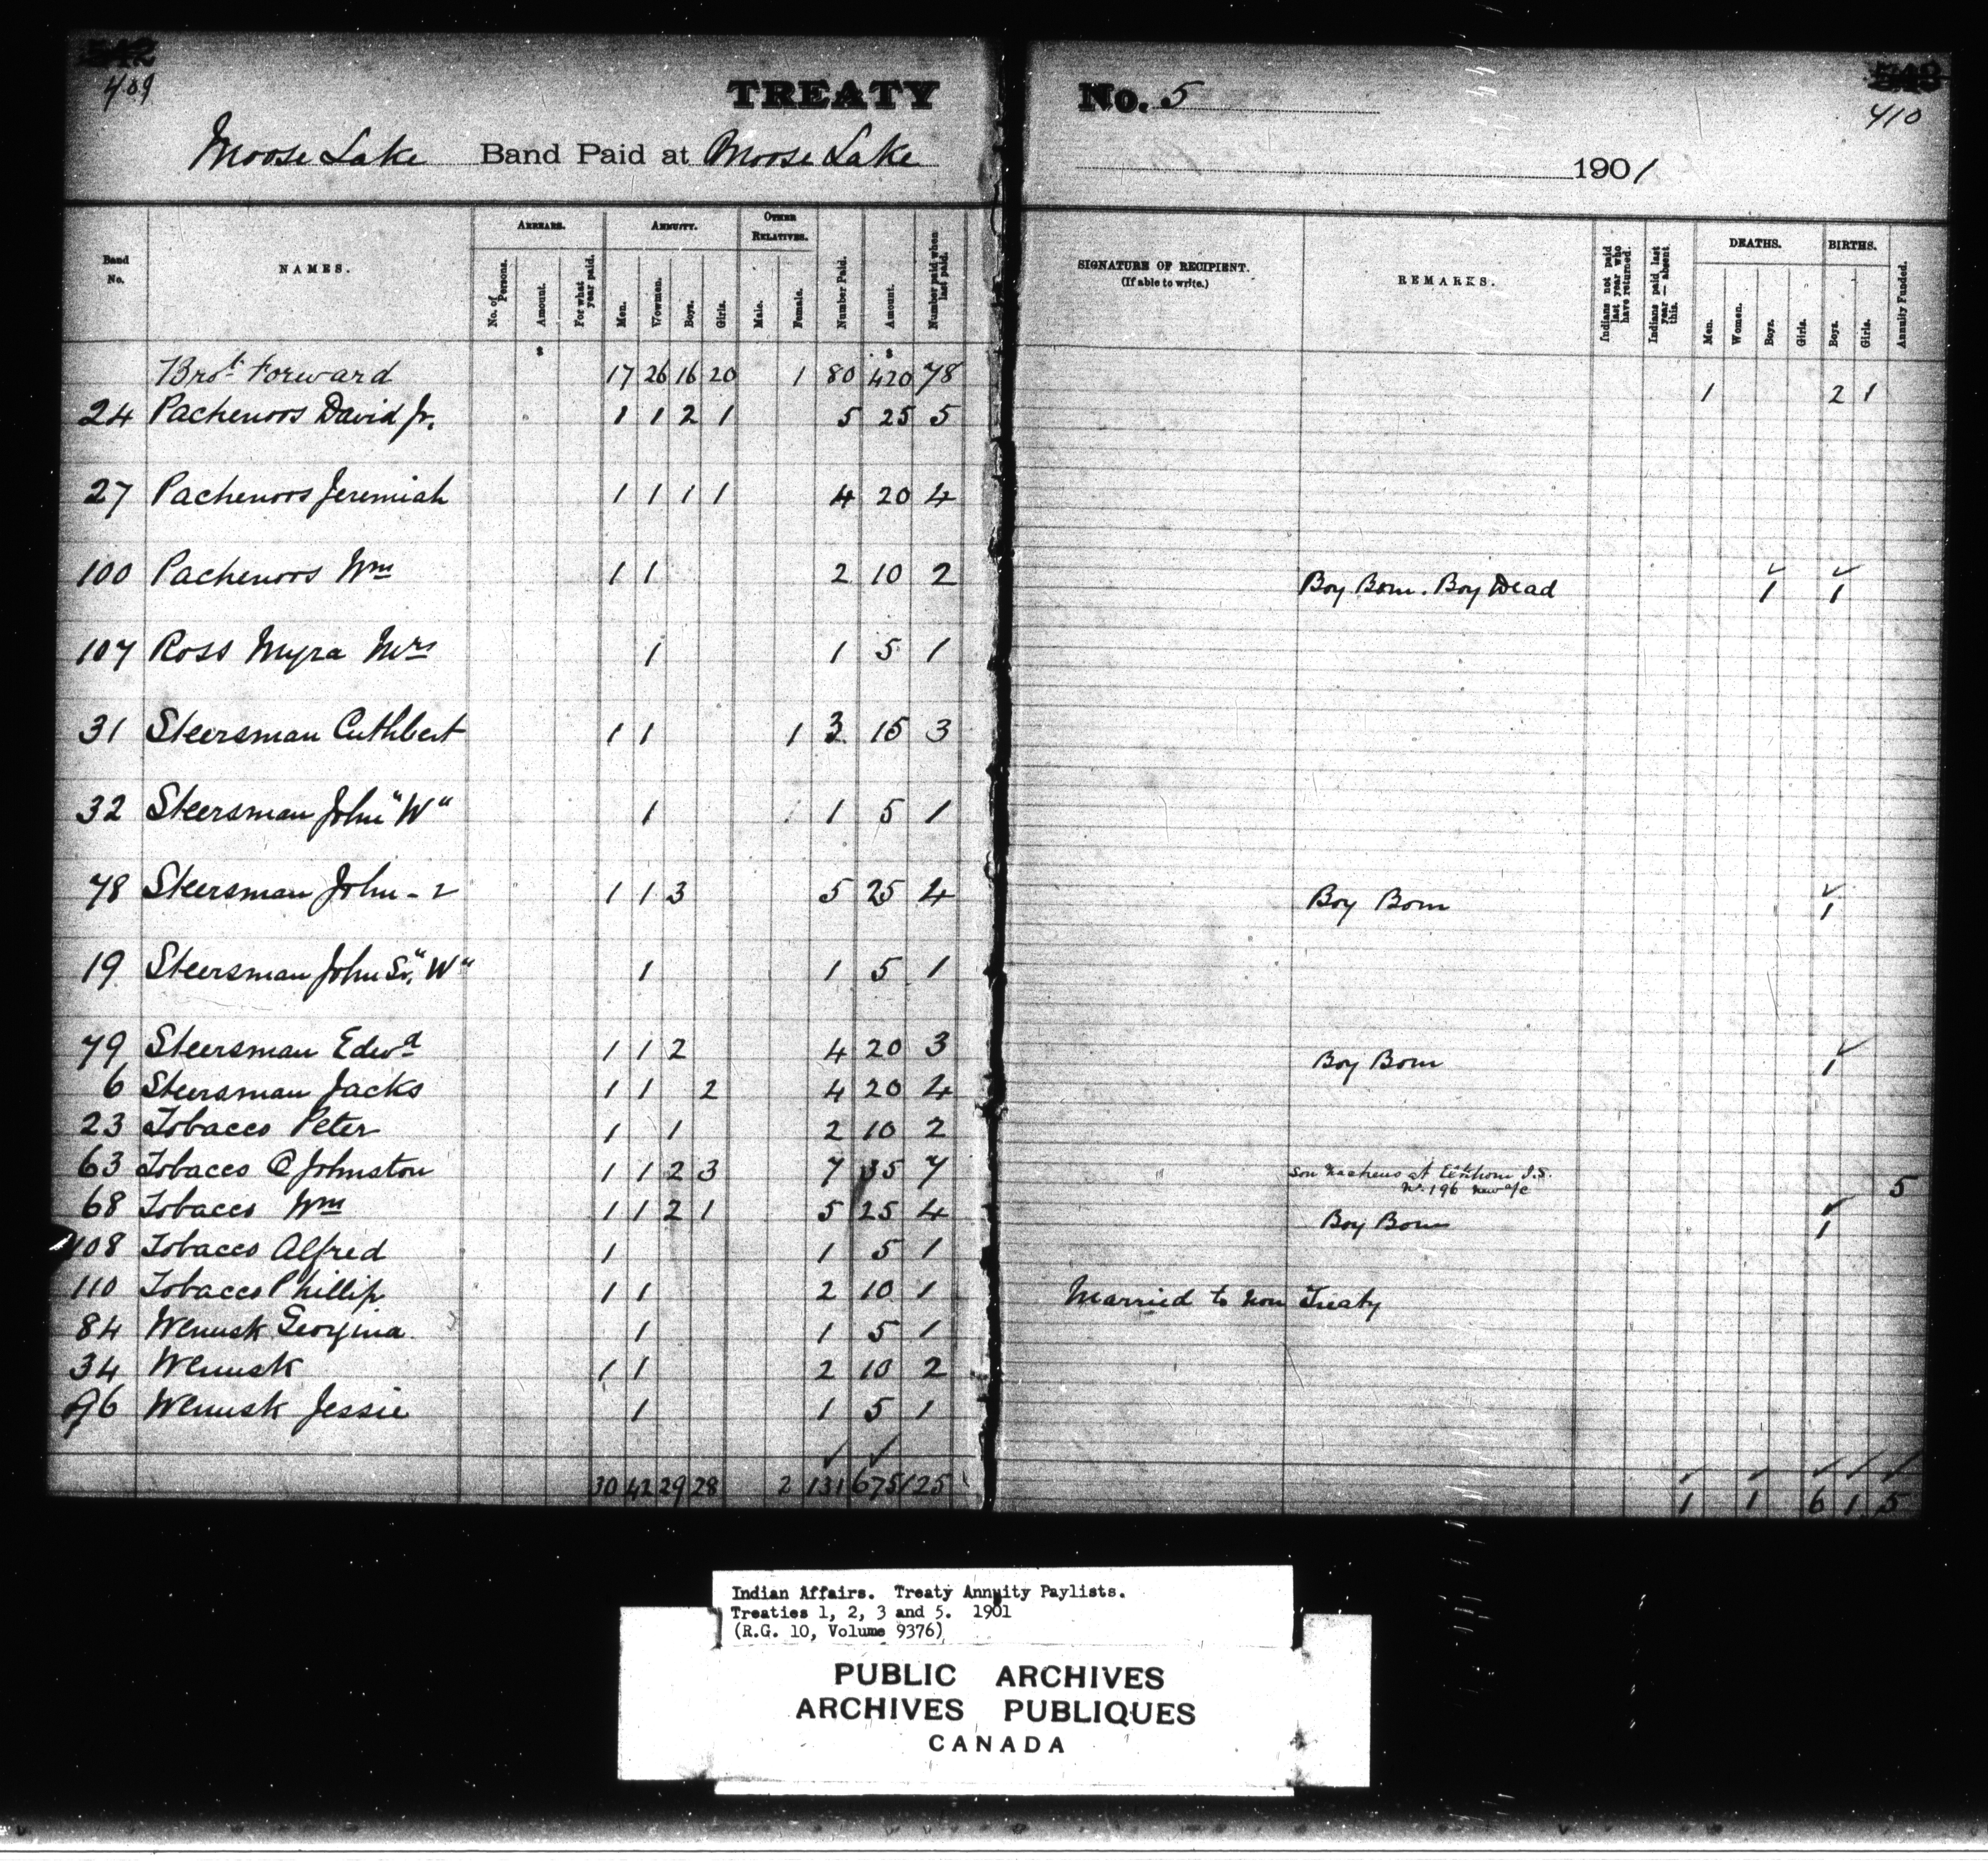 542
409
TREATY No. 5
548
410
Moose Lake Band Paid at Moose Lake 1901
Band No.
NAMES.
ARREARS.
No. of Persons.
Amount.
For what year paid.
ANNUITY.
Men.
Women.
Boys.
Girls.
OTHER RELATIVES.
Male.
Female.
Number Paid.
Amount.
Number paid when last paid.
SIGNATURE OF RECIPIENT.
(If able to write.)
REMARKS.
Indians not paid last year who have returned.
Indians paid last year—absent this.
DEATHS.
Men.
Women.
Boys.
Girls.
BIRTHS.
Boys.
Girls.
Annuity Funded.
Brot. Forward 17 26 16 20 1 80 420 78 1 2 1
24 Pachenoos David Jr. 1 1 2 1 5 25 5
27 Pachenoos Jeremiah 1 1 1 1 4 20 4
100 Pachenoos Wm 1 1 2 10 2 Boy Born. Boy Dead 1 1
107 Ross Myra Mrs 1 1 5 1
31 Steersman Cuthbert 1 1 1 3 15 3
32 Steersman John "W" 1 1 5 1
78 Steersman John - 2 1 1 3 5 25 4 Boy Born 1
19 Steersman John Sr. "W" 1 1 5 1
79 Steersman Edwd 1 1 2 4 20 3 Boy Born 1
6 Steersman Jacks 1 1 2 4 20 4
23 Tobacco Peter 1 1 2 10 2
63 Tobacco @ Johnston 1 1 2 3 7 35 7 Son at Elkhorn I.S.
No. 196 New a/c 5
68 Tobacco Wm 1 1 2 1 5 25 4 Boy Born 1
108 Tobacco Alfred 1 1 5 1
110 Tobacco Phillip 1 1 2 10 1 Married to Non Treaty
84 Wenusk Georgina 1 1 5 1
34 Wenusk 1 1 2 10 2
96 Wenusk Jessie 1 1 5 1
30 42 29 28 2 131 675 125 1 1 6 1 5
Indian Affairs. Treaty Annuity Paylists.
Treaties 1, 2, 3 and 5. 1901
(R.G. 10, Volume 9376)
PUBLIC ARCHIVES
ARCHIVES PUBLIQUES
CANADA